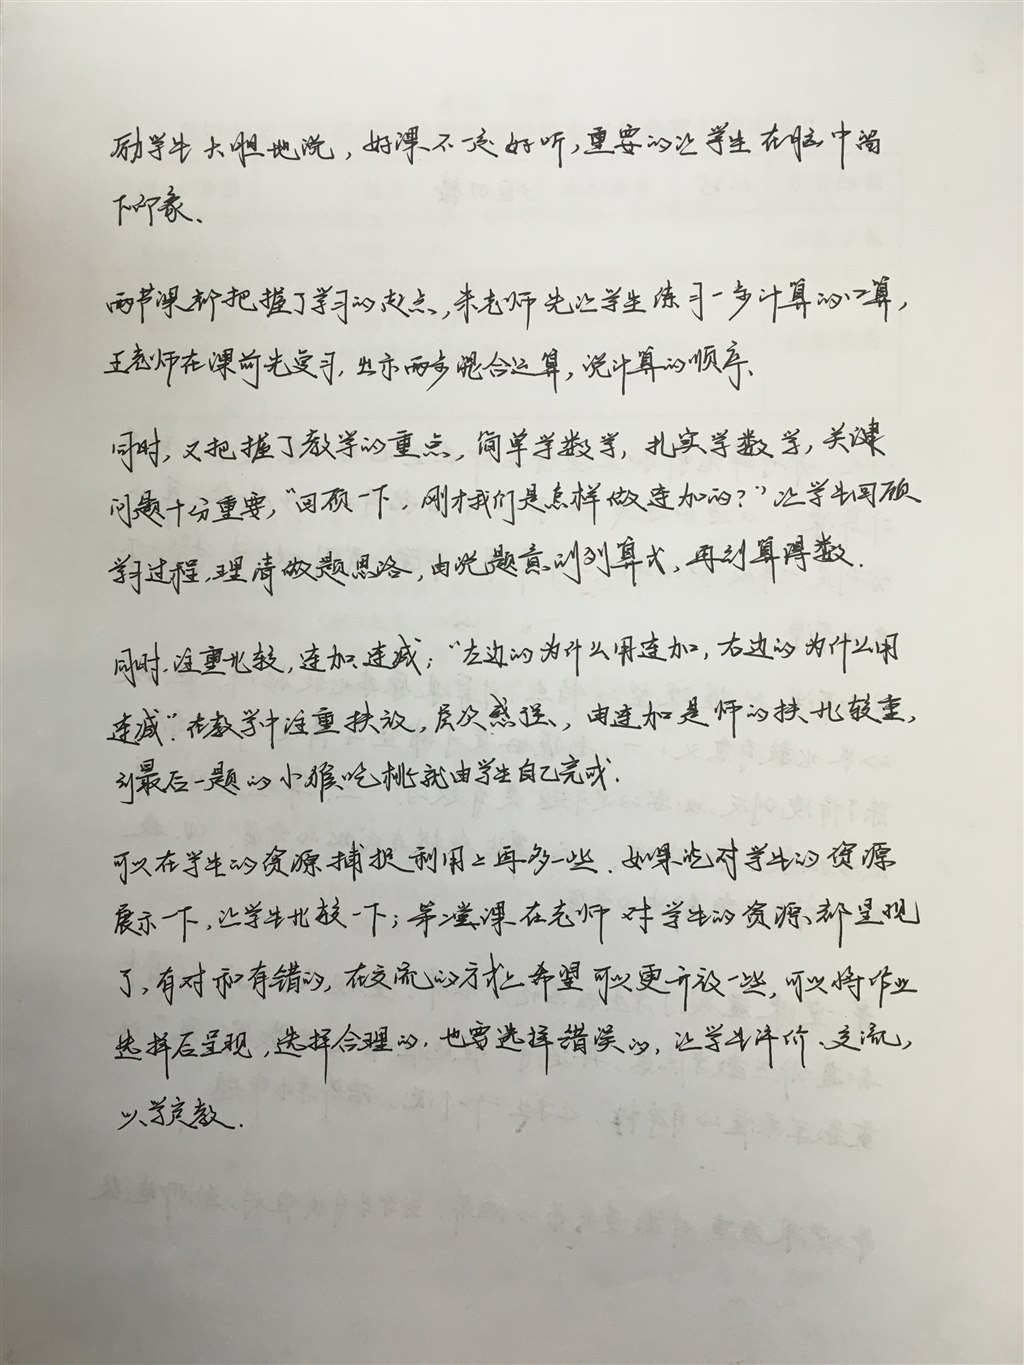 励学生大胆地说，好课不一定好听，重要的让学生在脑中留
下印象、
两节课都把握了学习的起点，朱老师先让学生练习一步计算的口算，
王老师在课前先复习，出示两步混合运算，说计算的顺序、
同时，又把握了教学的重点，简单学数学，扎实学数学，关键
问题十分重要，“回顾一下，刚才我们是怎样做连加的？”让学生回顾
学习过程，理清做题思路，由说题意到列算式，再到算得数.
同时，注重比较，连加、连减；“左边的为什么用连加，右边的为什么用
连减”.在教学中注重扶放，层次感强，由连加是师的扶比较重，
到最后一题的小猴吃桃就由学生自己完成.
可以在学生的资源捕捉利用上再多一些.如果说对学生的资源
展示一下，让学生比较一下；第二堂课在老师对学生的资源都呈现
了，有对和有错的，在交流的方式上希望可以更开放一些，可以将作业
选择后呈现，选择合理的，也要选择错误的，让学生评价、交流，
以学定教.